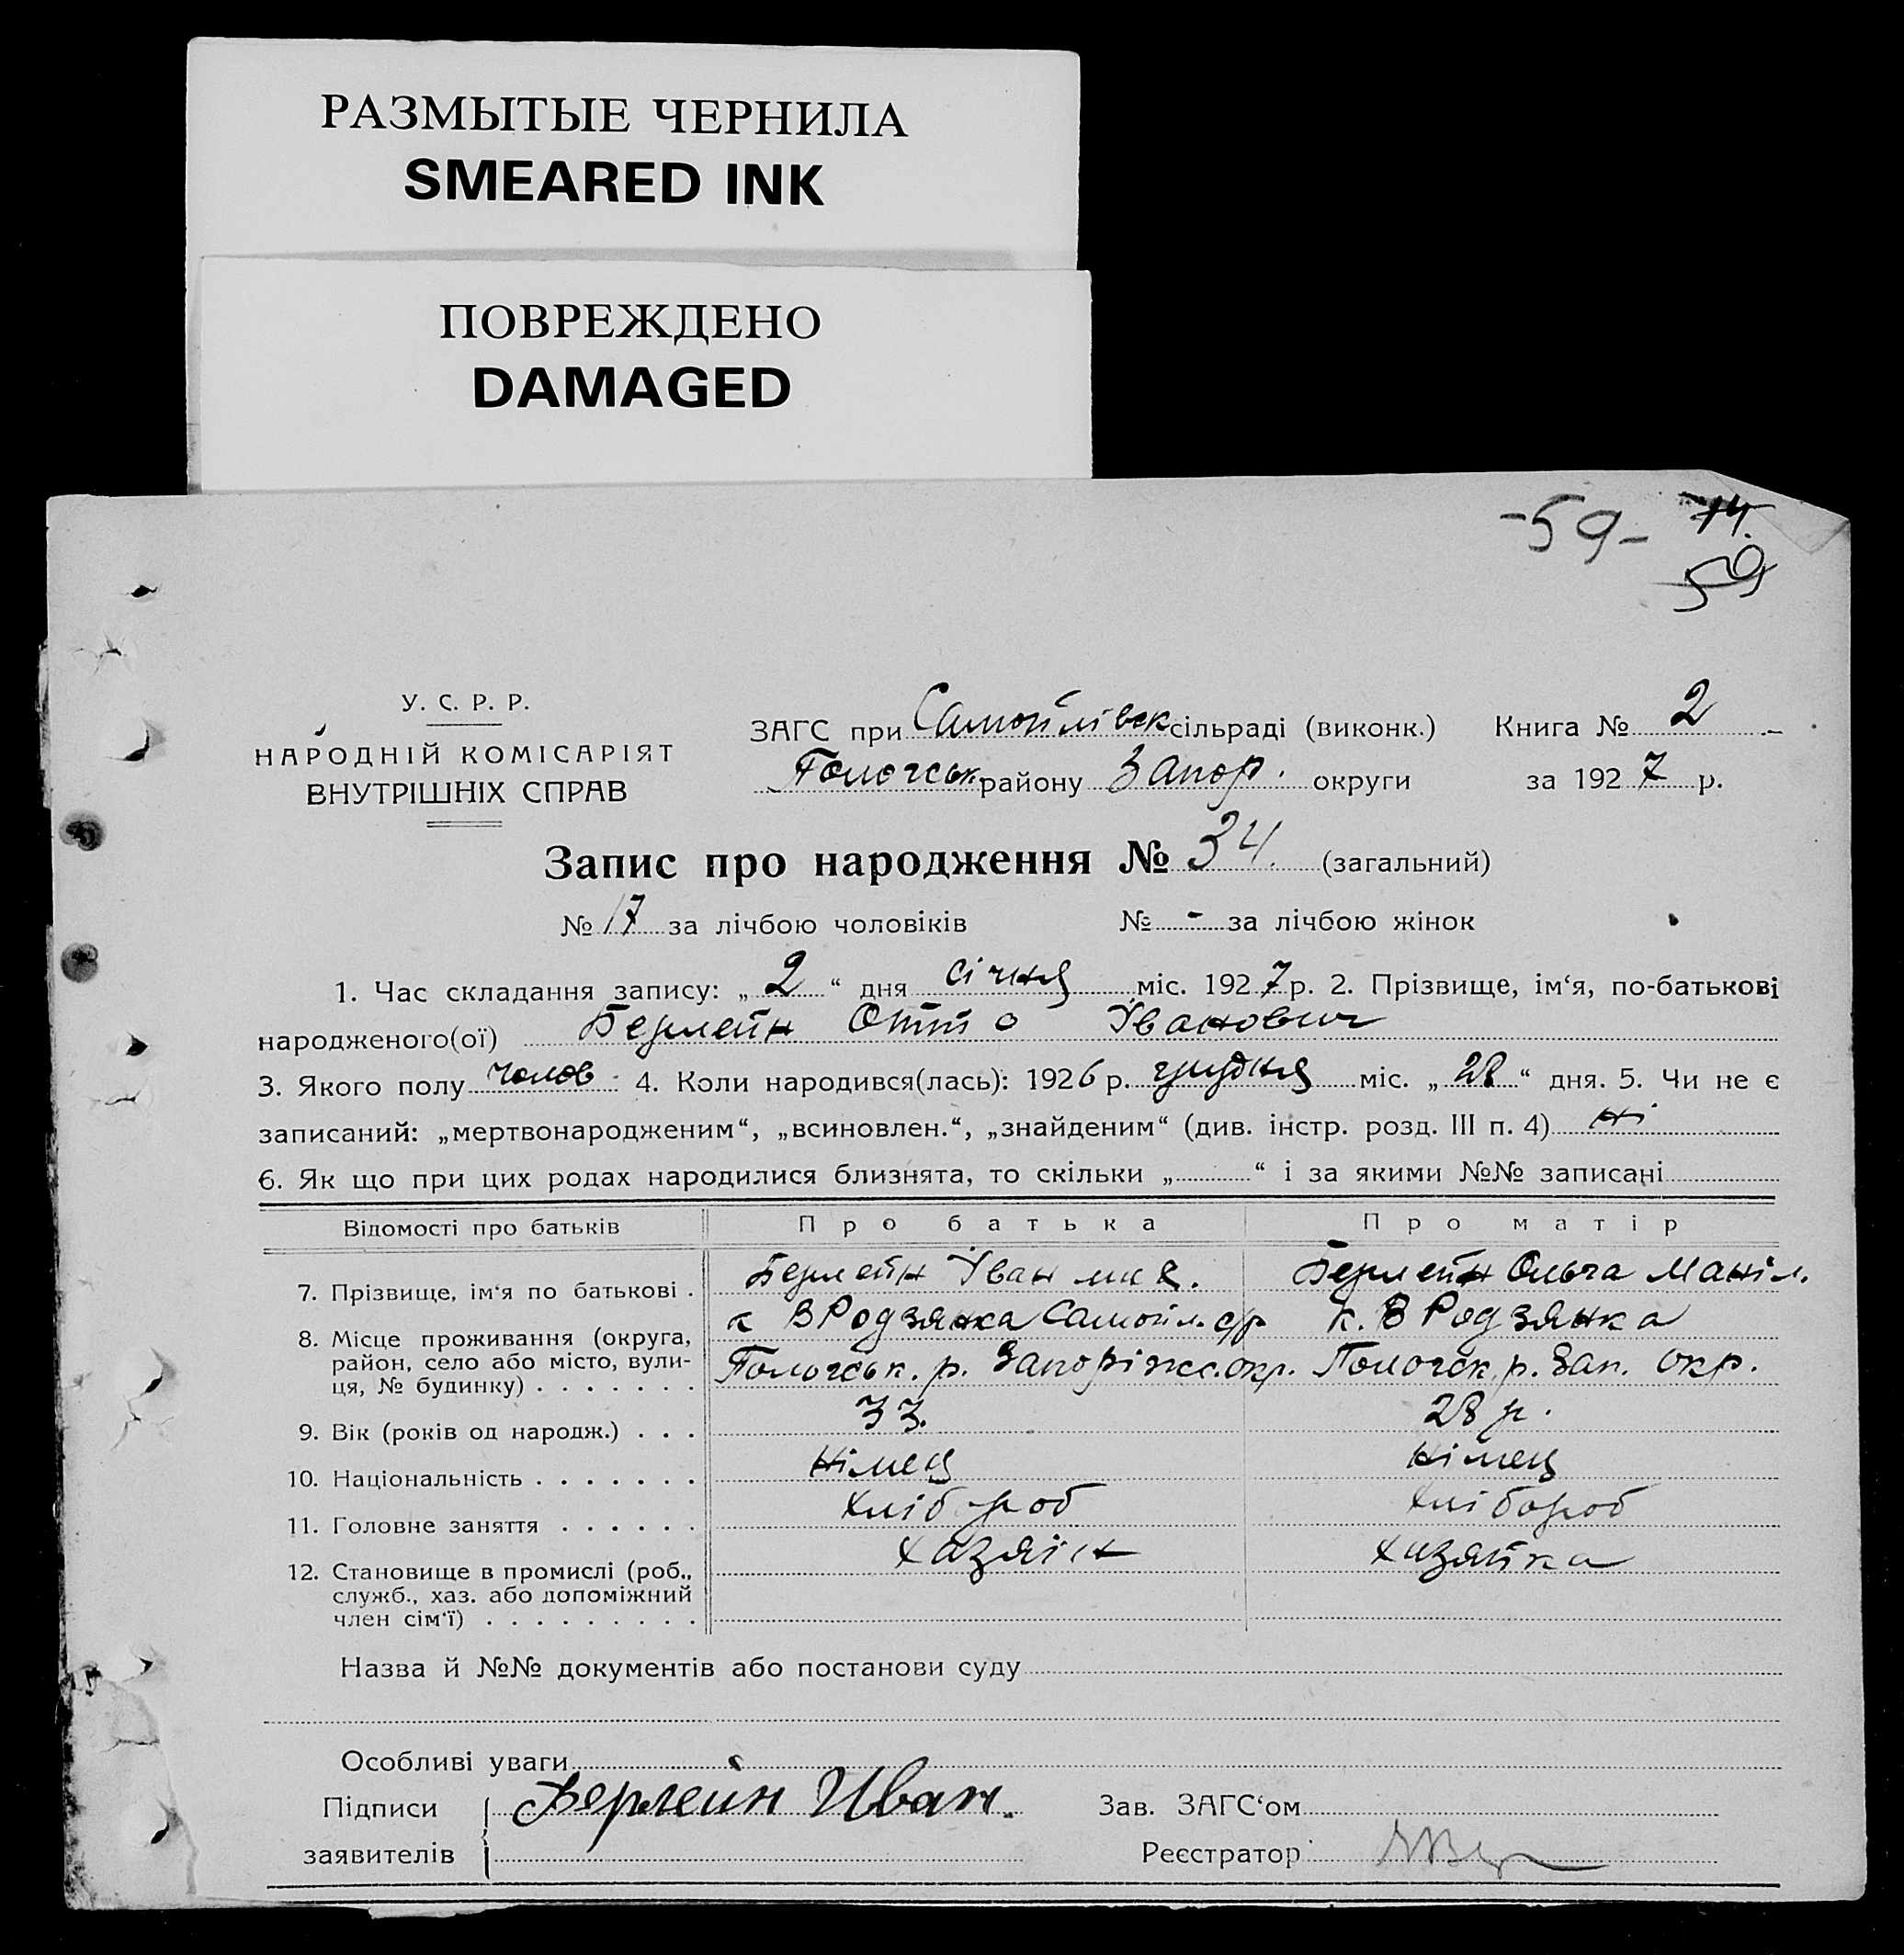 РАЗМЫТЫЕ ЧЕРНИЛА
SMEARED INK
ПОВРЕЖДЕНО
DAMAGED
-59- 14.
59
У. С. Р. Р.
НАРОДНІЙ КОМІСАРІЯТ
ВНУТРІШНІХ СПРАВ
ЗАГС при Самойлівск сільраді (виконк.) Книга № 2
Пологськ району Запор. округи за 1927 р.
Запис про народження № 34. (загальний)
№ 17 за лічбою чоловіків № - за лічбою жінок
1. Час складання запису: „2“ дня січня міс. 1927 р. 2. Прізвище, ім‘я, по-батькові
народженого(ої) Берлейн Отто Іванович
3. Якого полу чолов 4. Коли народився(лась): 1926 р. грудня міс. „28“ дня. 5. Чи не є
записаний: „мертвонародженим“, „всиновлен.“, „знайденим“ (див. інстр. розд. III п. 4) ні
6. Як що при цих родах народилися близнята, то скільки „ “ і за якими №№ записані
Відомості про батьків Про батька Про матір
7. Прізвище, ім‘я по батькові . Берлейн Іван Берлейн Ольга Маніл.
8. Місце проживання (округа, к В Родзянка Самойл. с/р к. В Родзянка
район, село або місто, вули- Пологськ. р. Запоріжс. окр. Пологск. р. Зап. окр.
ця, № будинку) . . . . . . .
9. Вік (років од народж.) . . . 33. 28 р.
10. Національність . . . . . . . німец німец
11. Головне заняття . . . . . . хлібороб хлібороб
12. Становище в промислі (роб., хазяїн хазяйка
служб., хаз. або допоміжний
член сім‘ї) . . . . . . . . .
Назва й №№ документів або постанови суду
Особливі уваги
Підписи Берлейн Иван. Зав. ЗАГС‘ом
заявителів Реєстратор